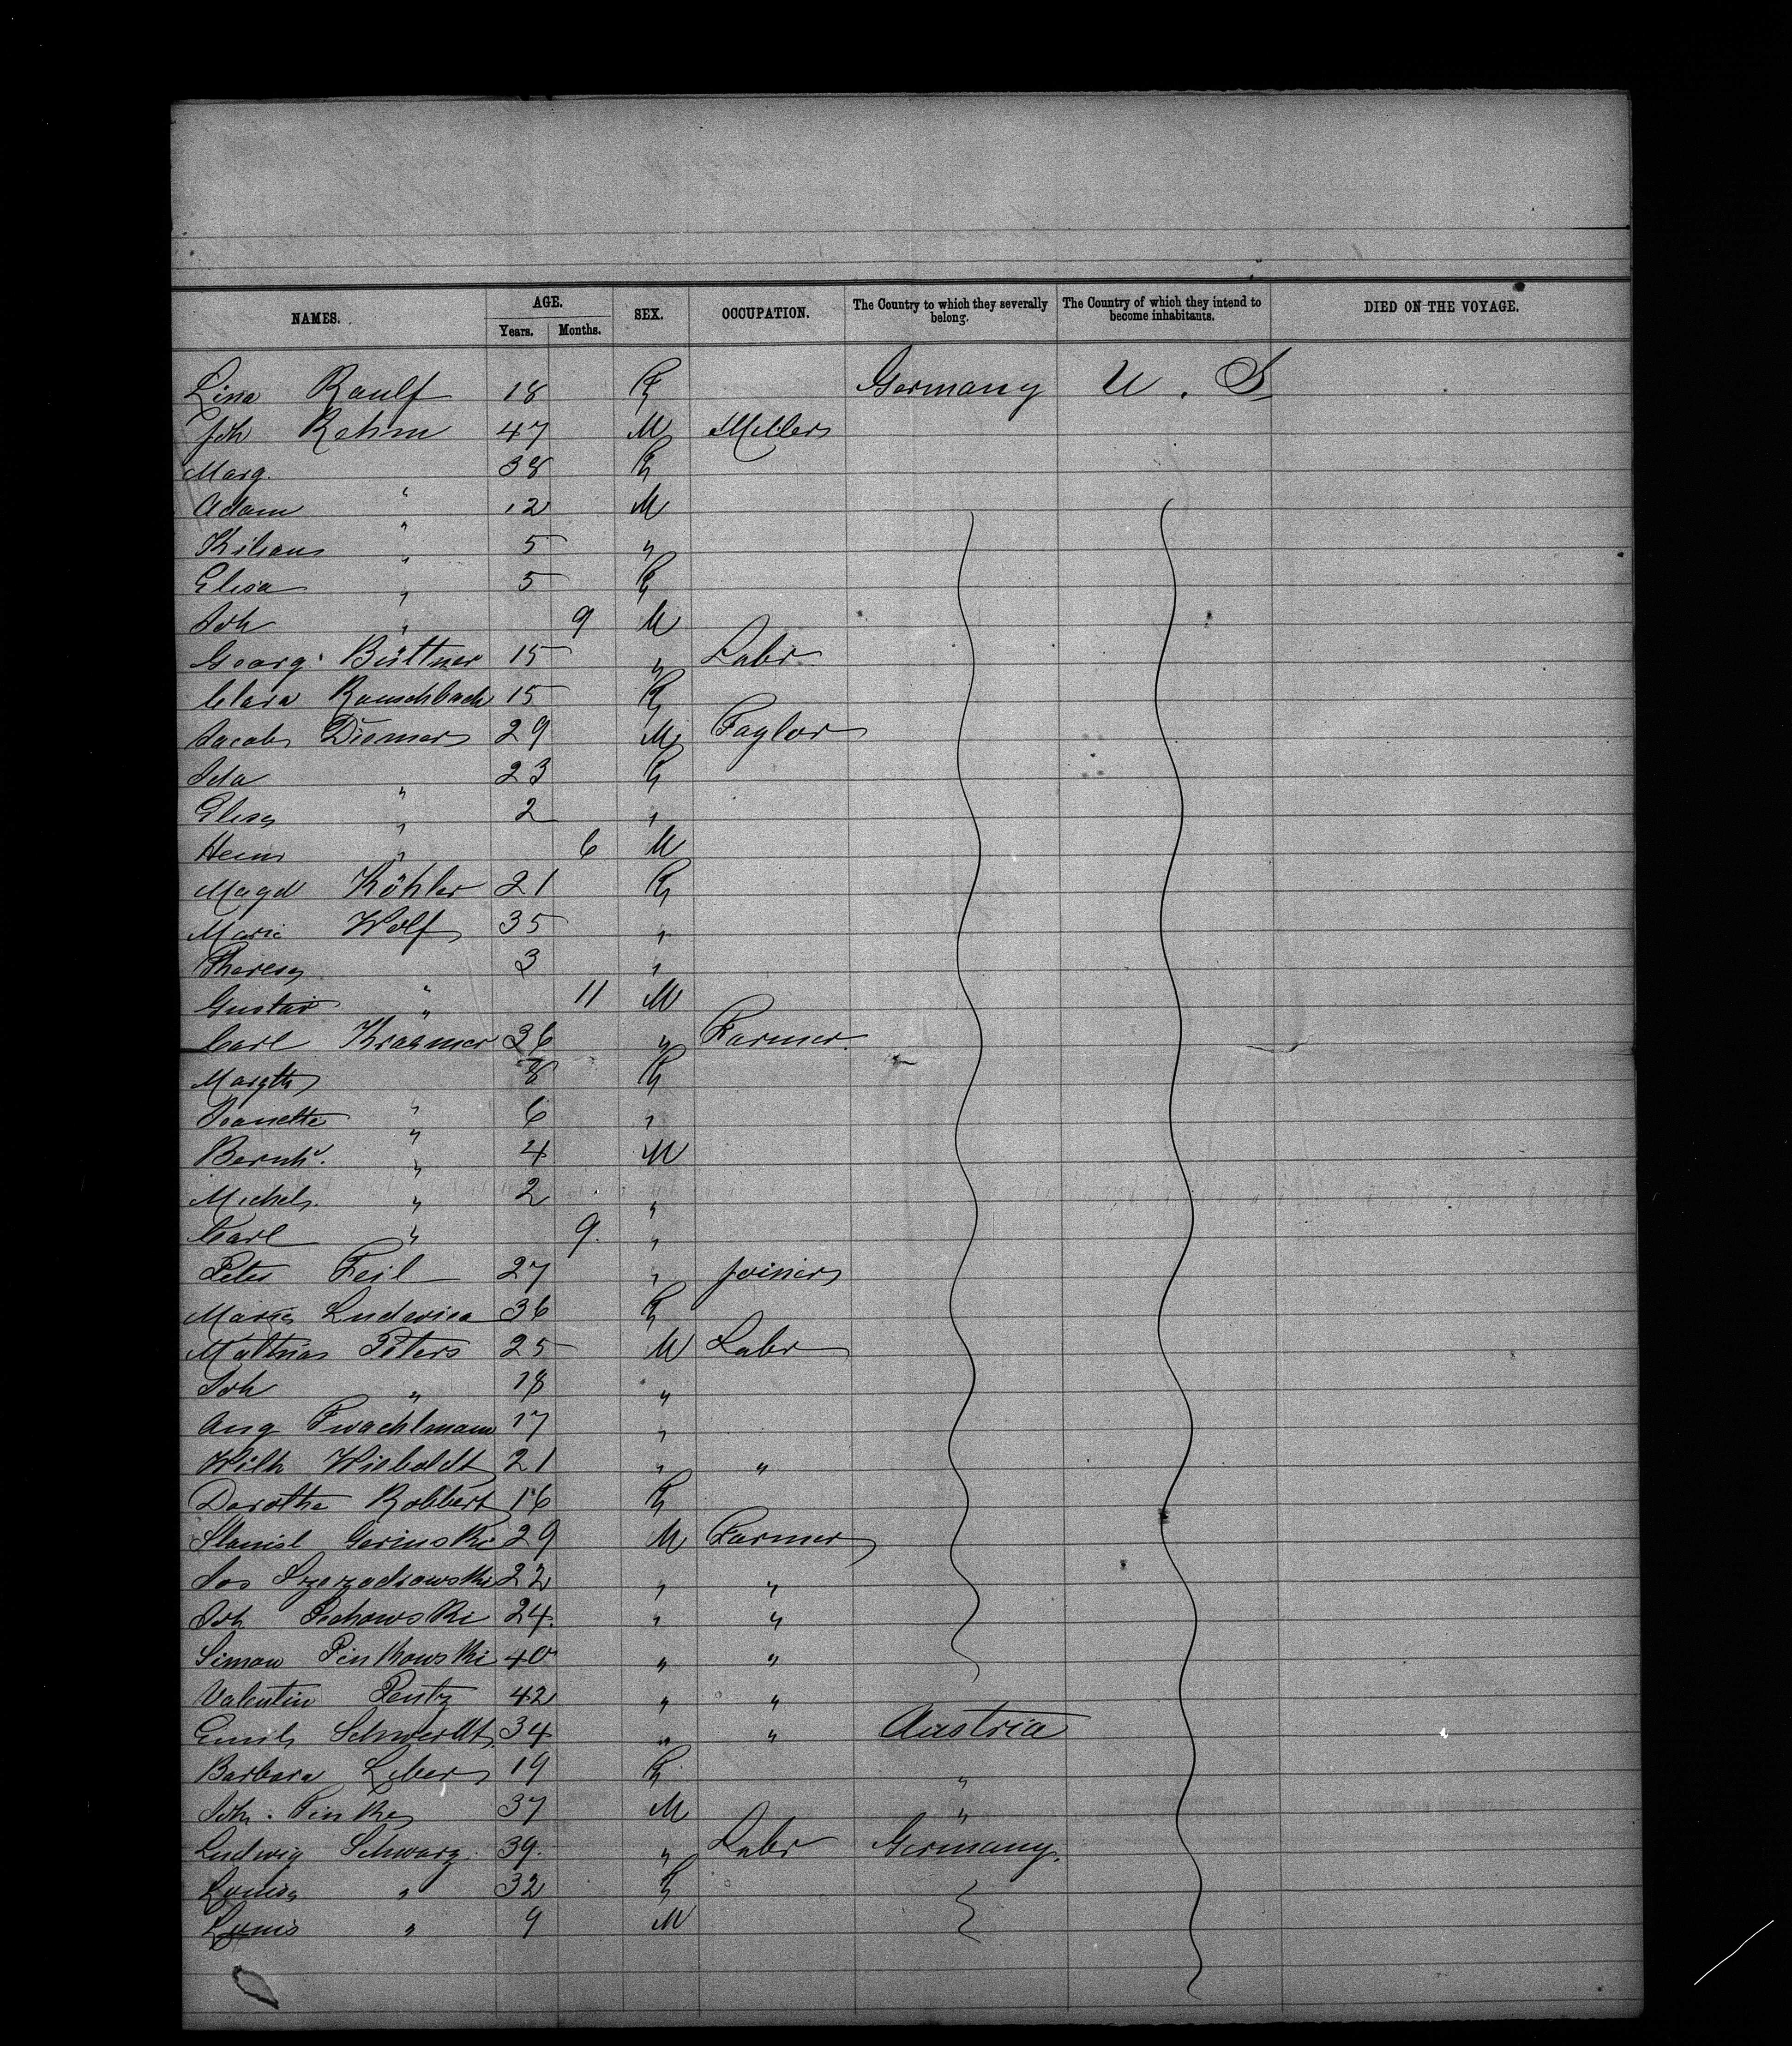 NAMES. AGE. SEX. OCCUPATION. The Country to which they severally belong. The Country of which they intend to become inhabitants. DIED ON THE VOYAGE.
Years. Months.
Lina Raulf 18 F Germany U. S.
Joh Rehm 47 M Miller
Marg. " 38 F
Adam " 12 M
Kilian " 5 "
Elisa " 5 F
Joh " 9 M
Georg Büttner 15 " Labr
Clara Rauschbach 15 F
Jacob Diemer 29 M Taylor
Ida " 23 F
Elisa " 2 "
Heinr " 6 M
Magd Köhler 21 F
Marie Wolf 35 "
Theresa " 3 "
Gustav " 11 M
Carl Kraemer 36 " Farmer
Margth " 8 F
Jeanette " 6 "
Bernhd. " 4 M
Michel " 2 "
Carl " 9 "
Peter Feil 27 " Joiner
Maria Ludwica 36 F
Mathias Peters 25 M Labr
Joh " 18 "
Aug 17 "
Wilh Wieboldt 21 " "
Dorothe Robbert 16 F
Stanisl Gorinski 29 M Farmer
Jos 22 " "
Joh Pechowski 24 " "
Simon Pinkowski 40 " "
Valentin Pentz 42 " "
Emil Schwerdt 34 " " Austria
Barbara Leber 19 F "
Joh. Finke 37 M "
Ludwig Schwarz 39 " Labr Germany
Louisa " 32 F
Louis " 9 M